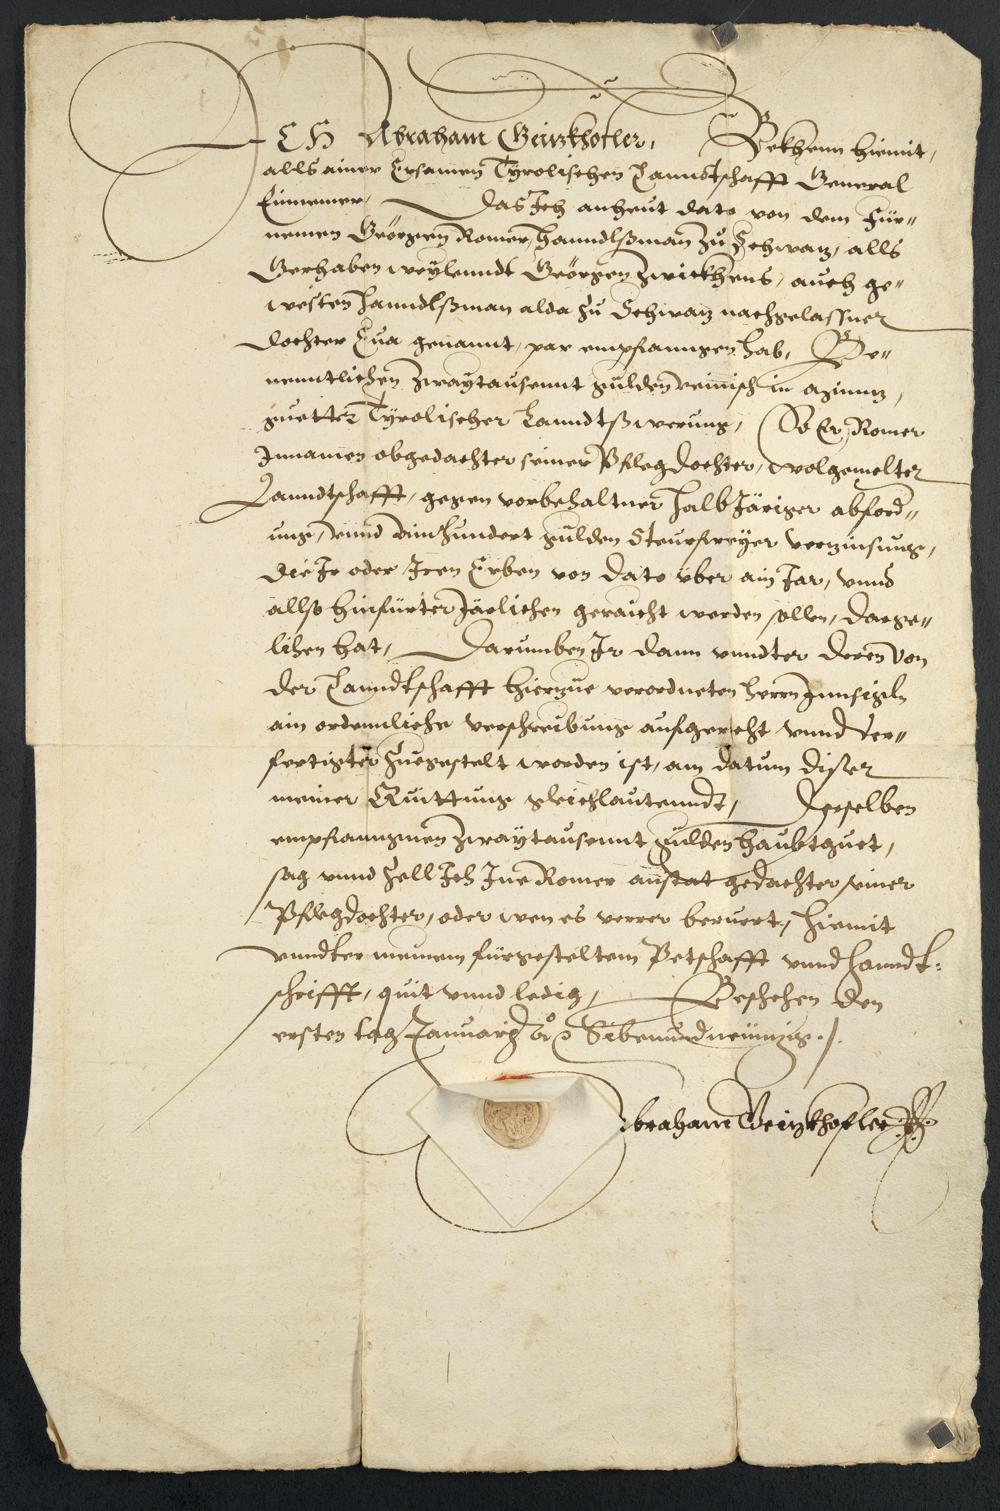 ICH Abraham Geizkhofler, Bekhenn hiemit,
alls ainer Ersamen Tyrolischen Lanndtschafft General
Einnemer, Das Ich anheut dato von dem Für„
nemen Geörgen Romer, Hanndlßman zu Schwaz, alls
Gerhaben weylenndt Geörgen Zwickhens, auch ge„
westen Hanndlßman alda zu Schwaz nachgelassner
Dochter Eua genannt, par empfanngen hab, Be„
nenntlichen Zwaytausennt gulden reinisch in
guetter Tyrolischer Lanndtßwerung, So Er Romer
Innamen obgedachter seiner Pflegdochter, wolgemelter
Lanndtschafft, gegen vorbehaltner halb Järiger abford„
ung, vnnd ainhundert gulden Steurfreyer verzinsung,
die Ir oder Iren Erben von dato über ain Jar, vnnd
allso hinfürter Järlichen geraicht werden sollen, darge„
lihen hat, Darumben Ir dann vnndter deren von
der Lanndtschafft hierzue verordneten Herrn Innsigln
ain ordennliche verschreibung aufgericht vnnd ver„
fertigter zuegestelt worden ist, am datum diser
meiner Quittung gleichlautenndt, Derselben
empfanngnen Zwaytausennt gulden haubtguet,
sag vnnd zell Ich Ine Romer anstat gedachter seiner
Pflegdochter, oder wen es verrer beruert, hiemit
vnndter meinem fürgesteltem Petschafft vnnd Hanndt„
schrifft, quit vnnd ledig, Beschehen den
ersten tag Januarij Sibenundneünzig.
Abraham Geizkhofler